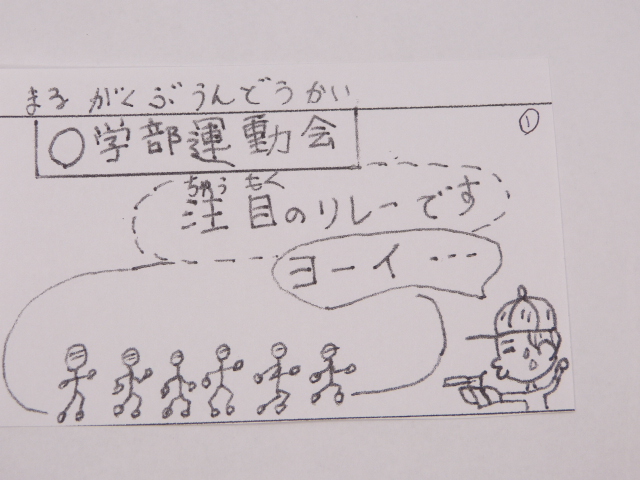 まるがくぶうんどうかい
①
○学部運動会
ちゅうもく
注目のリレーです
ヨーイ…